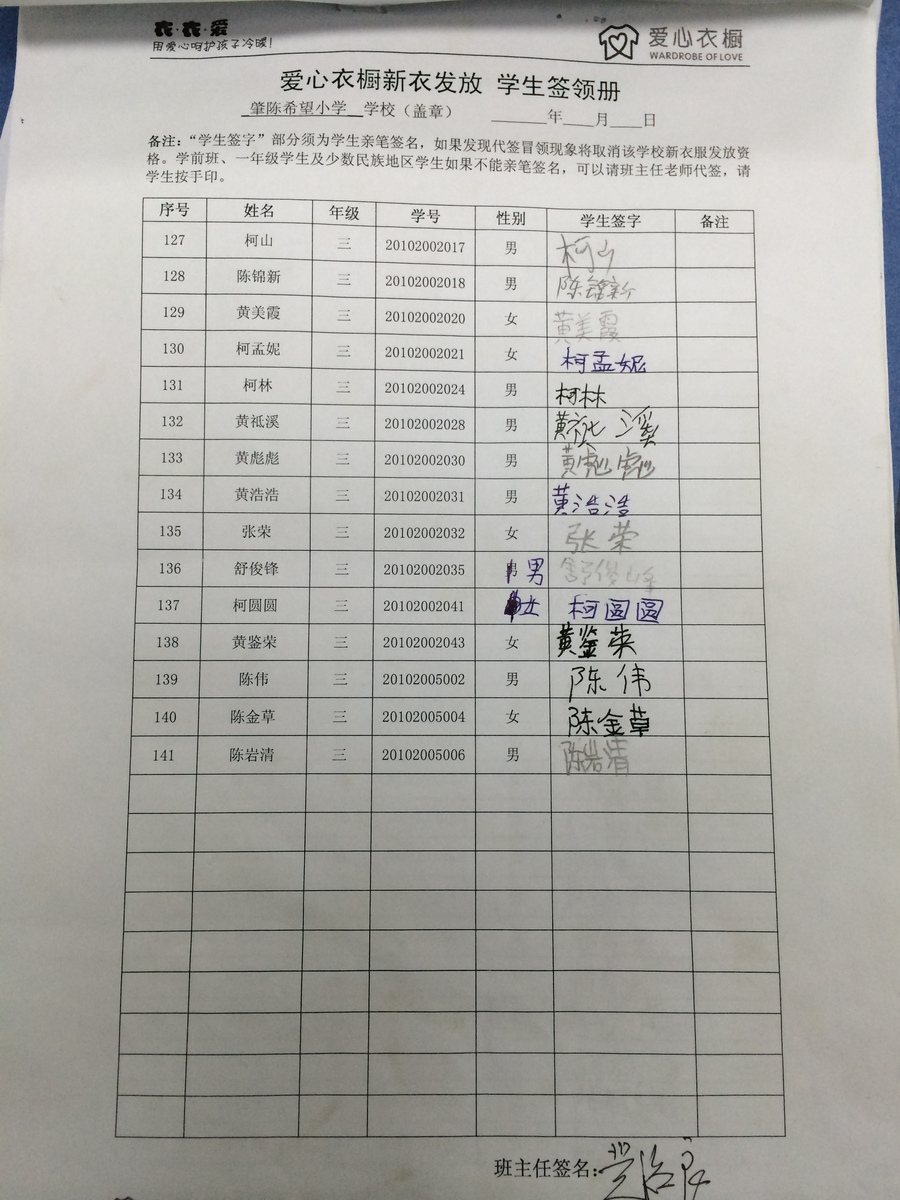 衣·衣·爱
用爱心呵护孩子冷暖!
爱心衣橱
WARDROBE OF LOVE
爱心衣橱新衣发放 学生签领册
肇陈希望小学 学校（盖章） ______年____月____日
备注：“学生签字”部分须为学生亲笔签名，如果发现代签冒领现象将取消该学校新衣服发放资
格。学前班、一年级学生及少数民族地区学生如果不能亲笔签名，可以请班主任老师代签，请
学生按手印。
序号 姓名 年级 学号 性别 学生签字 备注
127 柯山 三 20102002017 男 柯山
128 陈锦新 三 20102002018 男 陈锦新
129 黄美霞 三 20102002020 女 黄美霞
130 柯孟妮 三 20102002021 女 柯孟妮
131 柯林 三 20102002024 男 柯林
132 黄祗溪 三 20102002028 男 黄祗溪
133 黄彪彪 三 20102002030 男 黄彪彪
134 黄浩浩 三 20102002031 男 黄浩浩
135 张荣 三 20102002032 女 张荣
136 舒俊锋 三 20102002035 男 男 舒俊锋
137 柯圆圆 三 20102002041 女 柯圆圆
138 黄鉴荣 三 20102002043 女 黄鉴荣
139 陈伟 三 20102005002 男 陈伟
140 陈金草 三 20102005004 女 陈金草
141 陈岩清 三 20102005006 男 陈岩清
班主任签名：